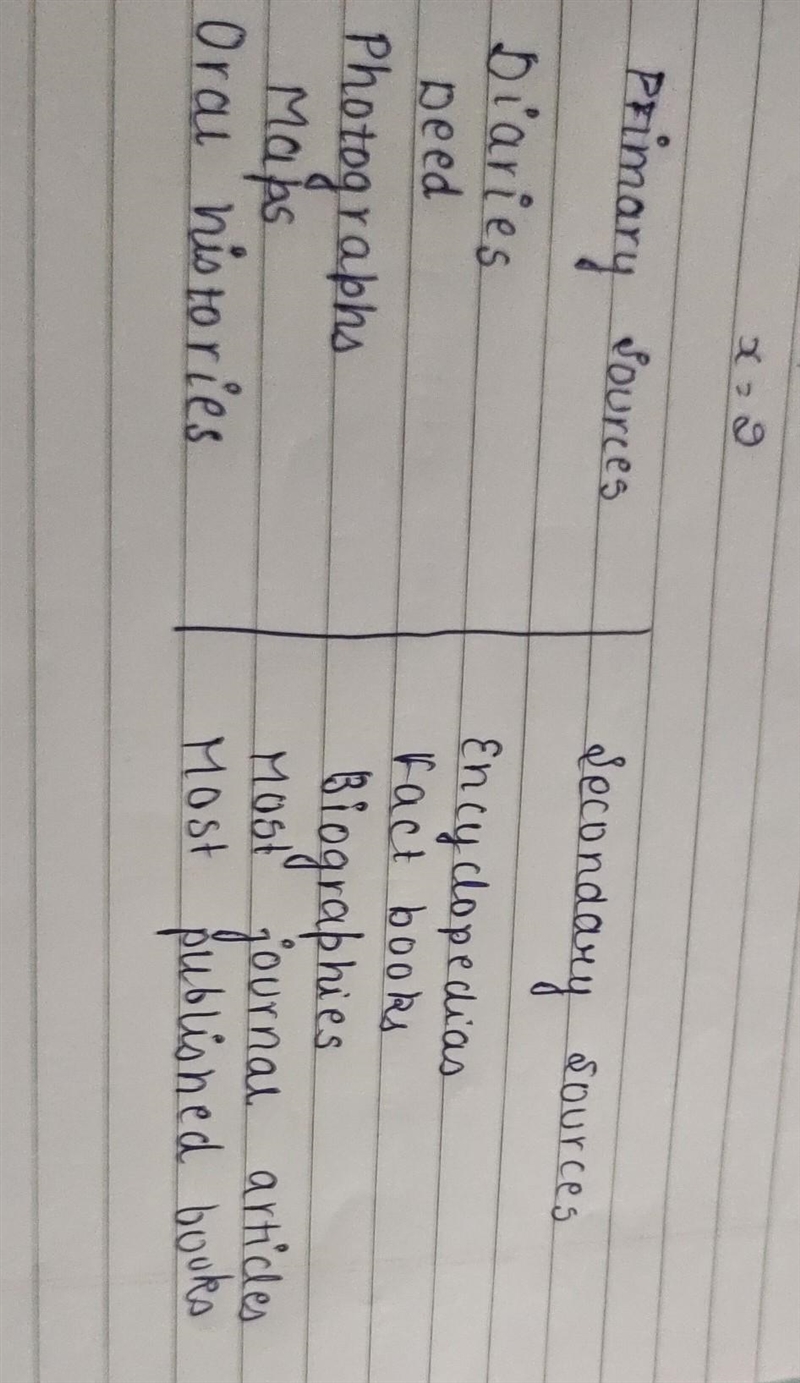 x = 9
Primary Sources Secondary Sources
Diaries Encyclopedias
Deed Fact books
Photographs Biographies
Maps Most journal articles
Oral histories Most published books